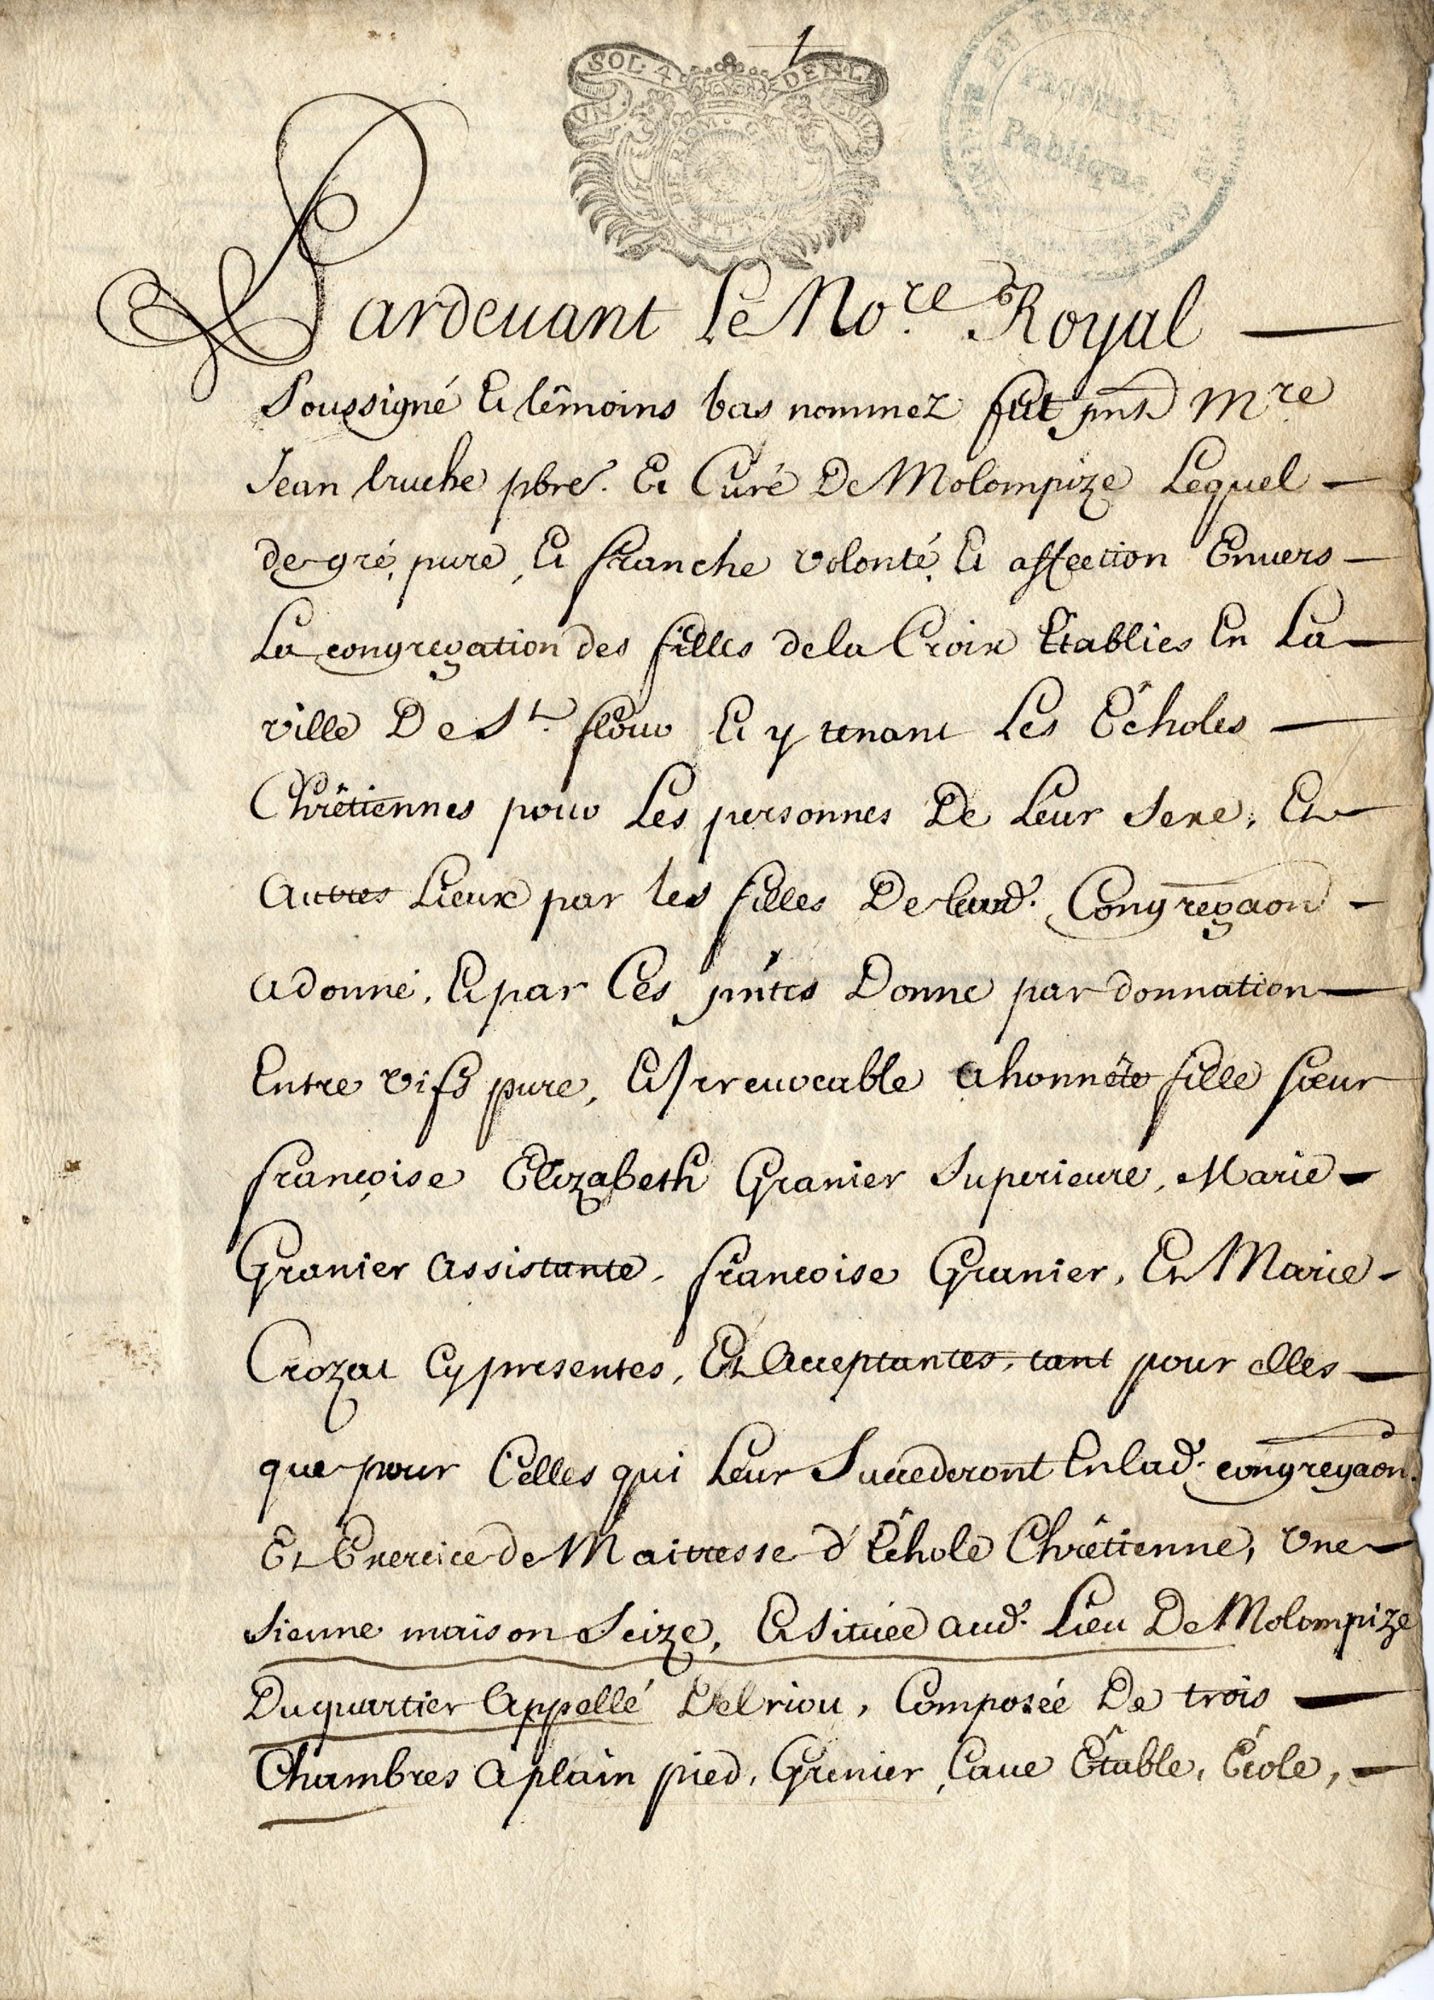 1
SOL 4 DEN LA
Pardeuant Le No.re Royal
Soussigné Et têmoins bas nommez fut pnt Mre
Jean truche pbre. Et Curé De Molompize Lequel
de gré, pure, Et franche volonté, Et affection Enuers
La congregation des filles de la Croix Etablies En La
ville De St. flour Et y tenant Les Écholes
Chrêtiennes pour Les personnes De Leur Sexe, Et
Autres Lieux par les filles De lad. Congregaon
a donné, Et par Ces pntes Donne par donnation
Entre vifs pure, Et Irreuocable a honnête fille sœur
françoise Elizabeth Granier Superieure, Marie
Granier Assistante, françoise Granier, Et Marie
Crozat Cy presentes, Et Acceptantes, tant pour elles
que pour Celles qui Leur Succederont En lad. congregaon.
Et Exercice de Maitresse d'Échole Chrêtienne, Vne
sienne maison Seize, Et située aud. Lieu De Molompize
Du quartier Appellé Delriou, Composée De trois
Chambres A plain pied, Grenier, Caue Étable, École,
PROPRIÉTÉ
Publique